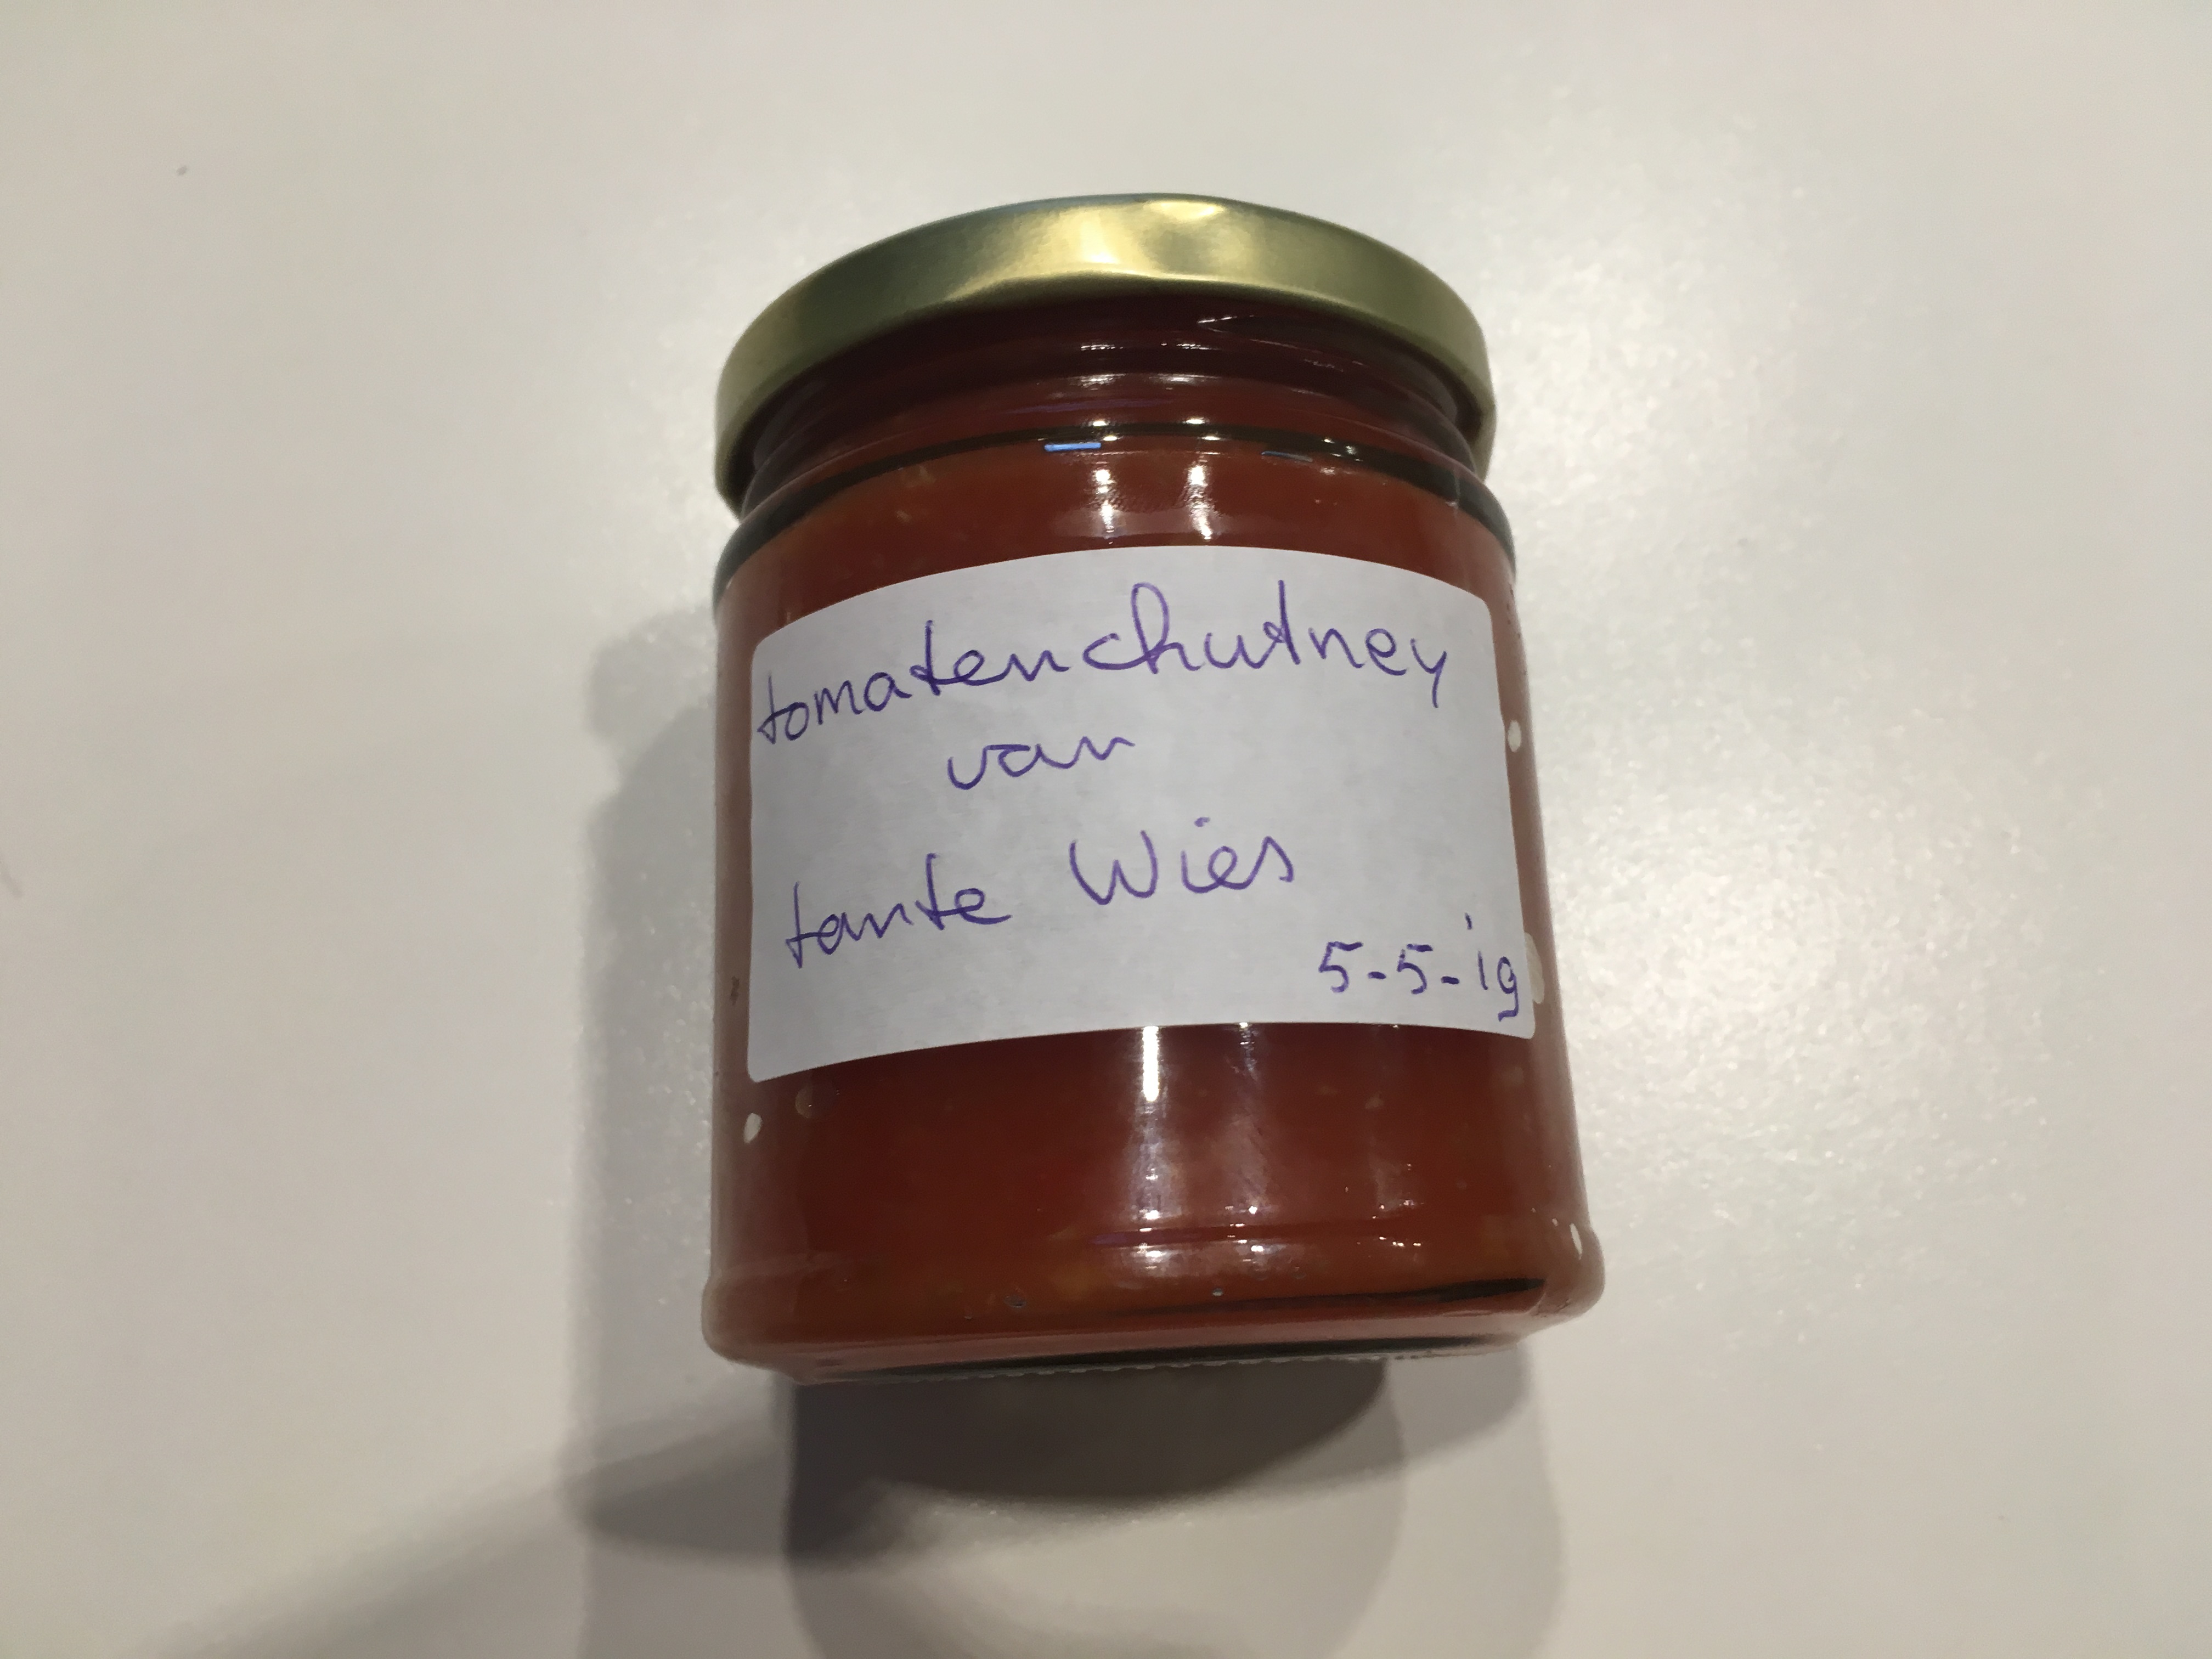 tomatenchutney
van
tante Wies
5-5-'19